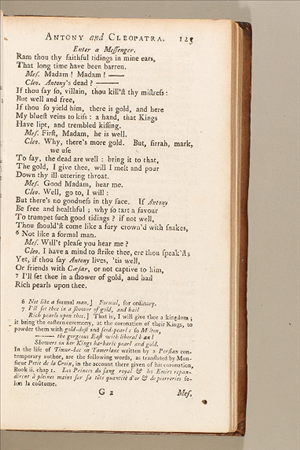 ANTONY and CLEOPATRA. 123
Enter a Messenger.
Ram thou thy faithful tidings in mine ears,
That long time have been barren.
Mes. Madam! Madam! ——
Cleo. Antony's dead? ——
If thou say so, villain, thou kill'st thy mistress:
But well and free,
If thou so yield him, there is gold, and here
My bluest veins to kiss: a hand, that Kings
Have lipt, and trembled kissing.
Mes. First, Madam, he is well.
Cleo. Why, there's more gold. But, sirrah, mark,
we use
To say, the dead are well: bring it to that,
The gold, I give thee, will I melt and pour
Down thy ill-uttering throat.
Mes. Good Madam, hear me.
Cleo. Well, go to, I will:
But there's no goodness in thy face. If Antony
Be free and healthful; why so tart a favour
To trumpet such good tidings? if not well,
Thou should'st come like a fury crown'd with snakes,
6 Not like a formal man.
Mes. Will't please you hear me?
Cleo. I have a mind to strike thee, ere thou speak'st:
Yet, if thou say Antony lives, 'tis well,
Or friends with Cæsar, or not captive to him,
7 I'll set thee in a shower of gold, and hail
Rich pearls upon thee.
6 Not like a formal man.] Formal, for ordinary.
7 I'll set thee in a shower of gold, and hail
Rich pearls upon thee.] That is, I will give thee a kingdom;
it being the eastern ceremony, at the coronation of their Kings, to
powder them with gold-dust and seed-pearl: so Milton,
—— the gorgeous East with liberal hand
Showers on her Kings barbaric pearl and gold.
In the life of Timur-bec or Tamerlane written by a Persian con-
temporary author, are the following words, as translated by Mon-
sieur Petit de la Croix, in the account there given of his coronation,
Book ii. chap. 1. Les Princes du sang royal & les Emirs repan-
dirent à pleines mains sur sa tête quantité d'or & de pierreries se-
lon la coûtume.
G 2 Mes.